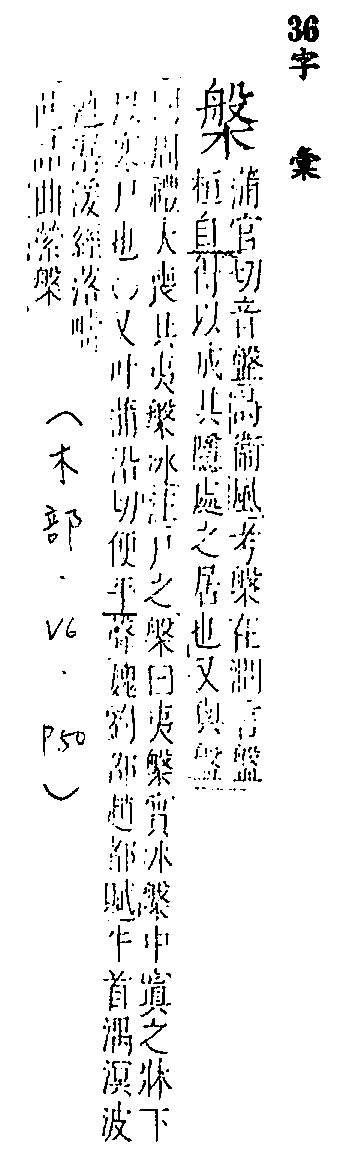 36字 彙
槃
蒲官切音盤詩衞風考槃在澗言盤
桓自得以成其隱處之居也又與盤
同周禮大喪共夷槃冰注尸之槃曰夷槃實冰槃中寘之牀下
以寒尸也〇又叶蒲沿切便平聲魏劉邵趙都賦牛首潏溟波
池潺湲經落
曲縈槃
(木部.V6.P.50)